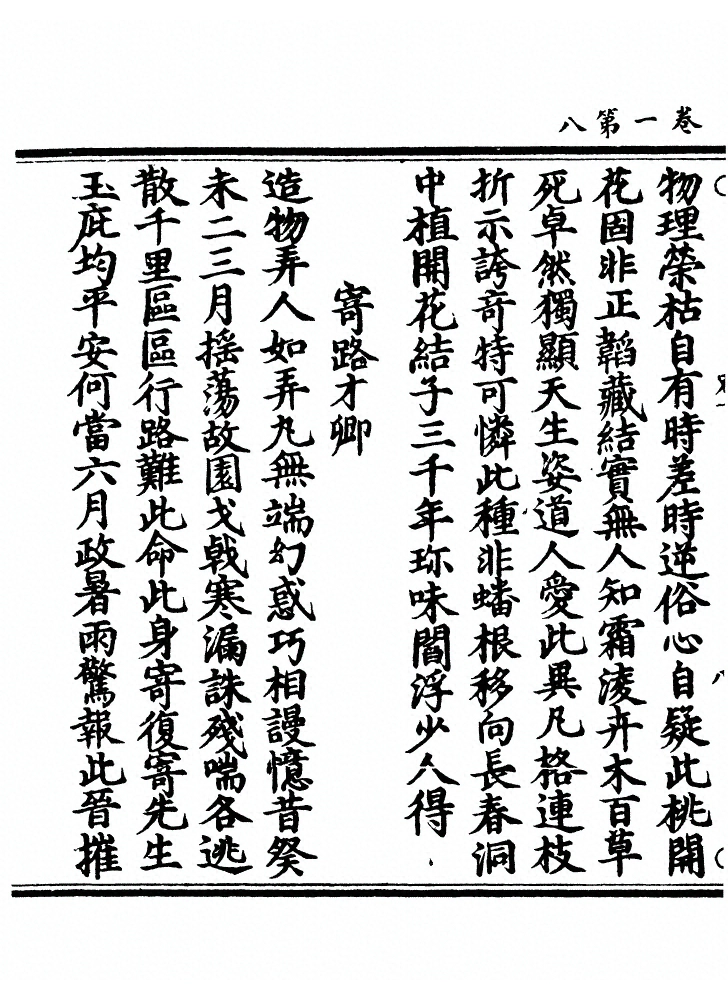 卷一第八
物理榮枯自有時差時逆俗心自疑此桃開
花固非正韜藏結實無人知霜淩卉木百草
死卓然獨顯天生姿道人愛此異凡格連枝
折示誇奇特可憐此種非蟠根移向長春洞
中植開花結子三千年珎味閻浮少人得
寄路才卿
造物弄人如弄丸無端幻惑巧相謾憶昔癸
未二三月搖蕩故園戈戟寒漏誅殘喘各逃
散千里區區行路難此命此身寄復寄先生
玉庇均平安何當六月政暑雨驚報此晉摧